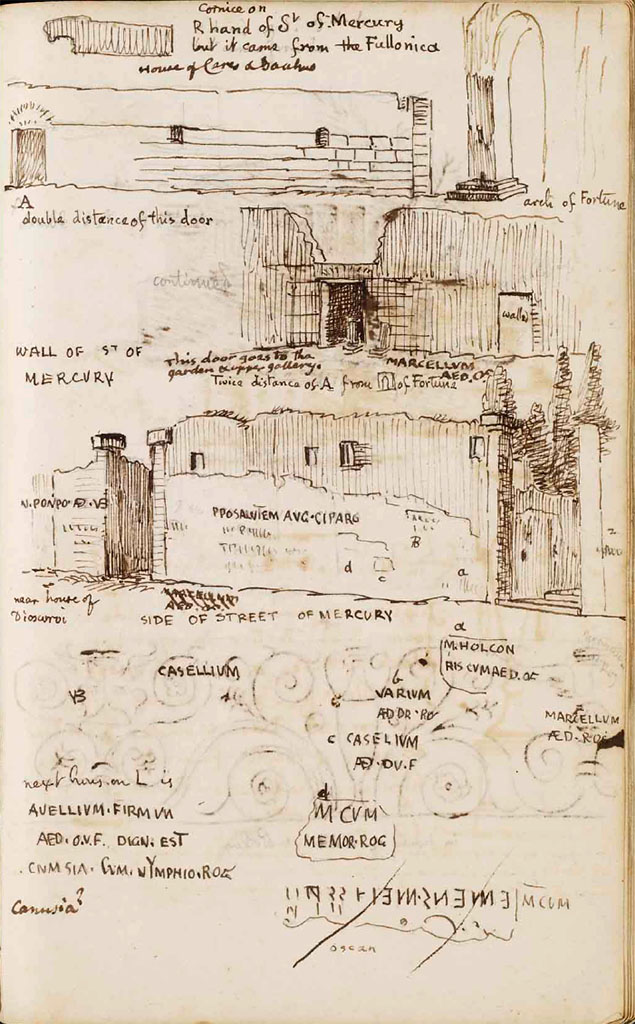 Cornice on
R hand of St of Mercury
but it came from the Fullonica
House of Ceres & Bacchus
arch of Fortune
A
double distance of this door
continued
walled
WALL OF ST OF
MERCURY
This door goes to the
garden & upper gallery.
MARCELLVM
AED. OF
Twice distance of A from of Fortune
N. PONPO ÆD. VB
PPOSALVTEM AVG. CIPARG
B
d
c
a
near house of
Dioscuroi
SIDE OF STREET OF MERCURY
a
M. HOLCON
RIS CVM AED. OF
CASELLIUM
VB
VARIUM
ÆD DR. RO
c CASELIVM
ÆD. DV. F
MARCELLUM
ÆD. ROG
next house on L is
AVELLIVM. FIRMVM
AED. O.V.F. DIGN. EST
CNM SIA. CVM. NYMPHIO. ROG
d
M CVM
MEMOR. ROG
Canusia?
M CVM
oscan